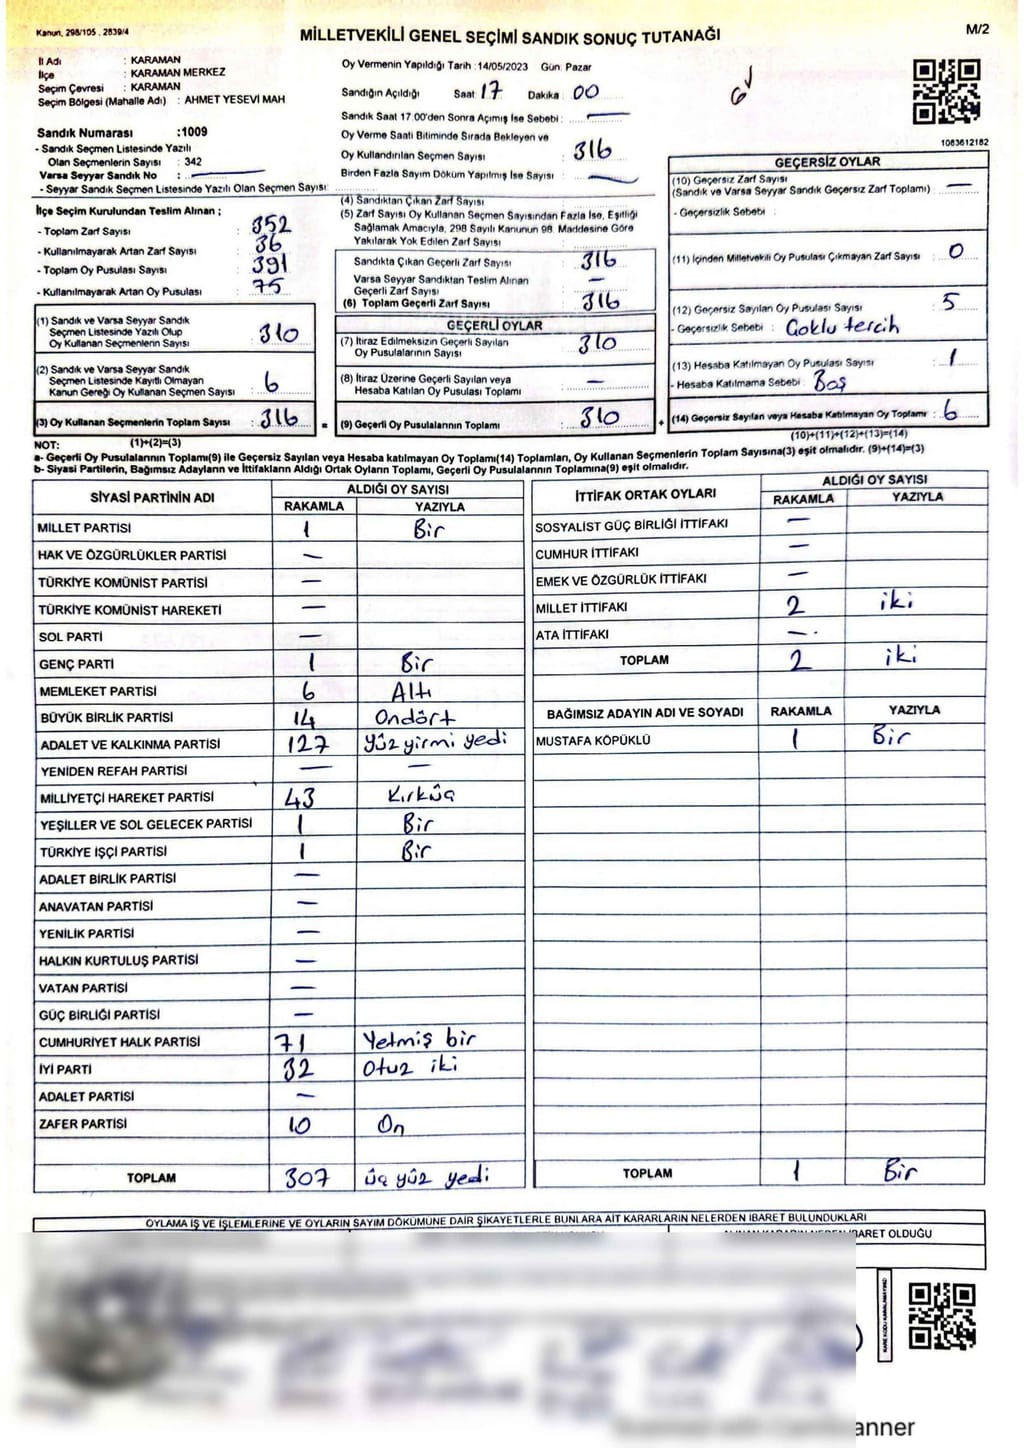 Kanun, 298/105 . 2839/4
MİLLETVEKİLİ GENEL SEÇİMİ SANDIK SONUÇ TUTANAĞI
M/2
İl Adı : KARAMAN
İlçe : KARAMAN MERKEZ
Seçim Çevresi : KARAMAN
Seçim Bölgesi (Mahalle Adı) : AHMET YESEVİ MAH
Sandık Numarası :1009
- Sandık Seçmen Listesinde Yazılı
Olan Seçmenlerin Sayısı : 342
Varsa Seyyar Sandık No : —
- Seyyar Sandık Seçmen Listesinde Yazılı Olan Seçmen Sayısı:
Oy Vermenin Yapıldığı Tarih :14/05/2023 Gün: Pazar
Sandığın Açıldığı Saat 17 Dakika : 00
Sandık Saat 17.00'den Sonra Açımış İse Sebebi : —
Oy Verme Saati Bitiminde Sırada Bekleyen ve
Oy Kullandırılan Seçmen Sayısı : 316
Birden Fazla Sayım Döküm Yapılmış İse Sayısı : —
1083612182
İlçe Seçim Kurulundan Teslim Alınan ;
- Toplam Zarf Sayısı : 352
- Kullanılmayarak Artan Zarf Sayısı : 36
- Toplam Oy Pusulası Sayısı : 391
- Kullanılmayarak Artan Oy Pusulası : 75
(1) Sandık ve Varsa Seyyar Sandık
Seçmen Listesinde Yazılı Olup
Oy Kullanan Seçmenlerin Sayısı : 310
(2) Sandık ve Varsa Seyyar Sandık
Seçmen Listesinde Kayıtlı Olmayan
Kanun Gereği Oy Kullanan Seçmen Sayısı : 6
(3) Oy Kullanan Seçmenlerin Toplam Sayısı : 316
(1)+(2)=(3)
(4) Sandıktan Çıkan Zarf Sayısı
(5) Zarf Sayısı Oy Kullanan Seçmen Sayısından Fazla İse, Eşitliği
Sağlamak Amacıyla, 298 Sayılı Kanunun 98. Maddesine Göre
Yakılarak Yok Edilen Zarf Sayısı :
Sandıkta Çıkan Geçerli Zarf Sayısı : 316
Varsa Seyyar Sandıktan Teslim Alınan
Geçerli Zarf Sayısı : —
(6) Toplam Geçerli Zarf Sayısı : 316
GEÇERLİ OYLAR
(7) İtiraz Edilmeksizin Geçerli Sayılan
Oy Pusulalarının Sayısı : 310
(8) İtiraz Üzerine Geçerli Sayılan veya
Hesaba Katılan Oy Pusulası Toplamı : —
= (9) Geçerli Oy Pusulalarının Toplamı : 310 +
GEÇERSİZ OYLAR
(10) Geçersiz Zarf Sayısı
(Sandık ve Varsa Seyyar Sandık Geçersiz Zarf Toplamı) : —
- Geçersizlik Sebebi :
(11) İçinden Milletvekili Oy Pusulası Çıkmayan Zarf Sayısı : 0
(12) Geçersiz Sayılan Oy Pusulası Sayısı : 5
- Geçersizlik Sebebi : Çoklu tercih
(13) Hesaba Katılmayan Oy Pusulası Sayısı : 1
- Hesaba Katılmama Sebebi : Boş
(14) Geçersiz Sayılan veya Hesaba Katılmayan Oy Toplamı : 6
(10)+(11)+(12)+(13)=(14)
NOT:
a- Geçerli Oy Pusulalarının Toplamı(9) ile Geçersiz Sayılan veya Hesaba katılmayan Oy Toplamı(14) Toplamları, Oy Kullanan Seçmenlerin Toplam Sayısına(3) eşit olmalıdır. (9)+(14)=(3)
b- Siyasi Partilerin, Bağımsız Adayların ve İttifakların Aldığı Ortak Oyların Toplamı, Geçerli Oy Pusulalarının Toplamına(9) eşit olmalıdır.
SİYASİ PARTİNİN ADI ALDIĞI OY SAYISI
RAKAMLA YAZIYLA
MİLLET PARTİSİ 1 Bir
HAK VE ÖZGÜRLÜKLER PARTİSİ —
TÜRKİYE KOMÜNİST PARTİSİ —
TÜRKİYE KOMÜNİST HAREKETİ —
SOL PARTİ —
GENÇ PARTİ 1 Bir
MEMLEKET PARTİSİ 6 Altı
BÜYÜK BİRLİK PARTİSİ 14 Ondört
ADALET VE KALKINMA PARTİSİ 127 Yüz yirmi yedi
YENİDEN REFAH PARTİSİ — —
MİLLİYETÇİ HAREKET PARTİSİ 43 Kırküç
YEŞİLLER VE SOL GELECEK PARTİSİ 1 Bir
TÜRKİYE İŞÇİ PARTİSİ 1 Bir
ADALET BİRLİK PARTİSİ —
ANAVATAN PARTİSİ —
YENİLİK PARTİSİ —
HALKIN KURTULUŞ PARTİSİ —
VATAN PARTİSİ —
GÜÇ BİRLİĞİ PARTİSİ —
CUMHURİYET HALK PARTİSİ 71 Yetmiş bir
İYİ PARTİ 32 Otuz iki
ADALET PARTİSİ —
ZAFER PARTİSİ 10 On
TOPLAM 307 üç yüz yedi
İTTİFAK ORTAK OYLARI ALDIĞI OY SAYISI
RAKAMLA YAZIYLA
SOSYALİST GÜÇ BİRLİĞİ İTTİFAKI —
CUMHUR İTTİFAKI —
EMEK VE ÖZGÜRLÜK İTTİFAKI —
MİLLET İTTİFAKI 2 iki
ATA İTTİFAKI —
TOPLAM 2 iki
BAĞIMSIZ ADAYIN ADI VE SOYADI RAKAMLA YAZIYLA
MUSTAFA KÖPÜKLÜ 1 Bir
TOPLAM 1 Bir
OYLAMA İŞ VE İŞLEMLERİNE VE OYLARIN SAYIM DÖKÜMÜNE DAİR ŞİKAYETLERLE BUNLARA AİT KARARLARIN NELERDEN İBARET BULUNDUKLARI
BARET OLDUĞU